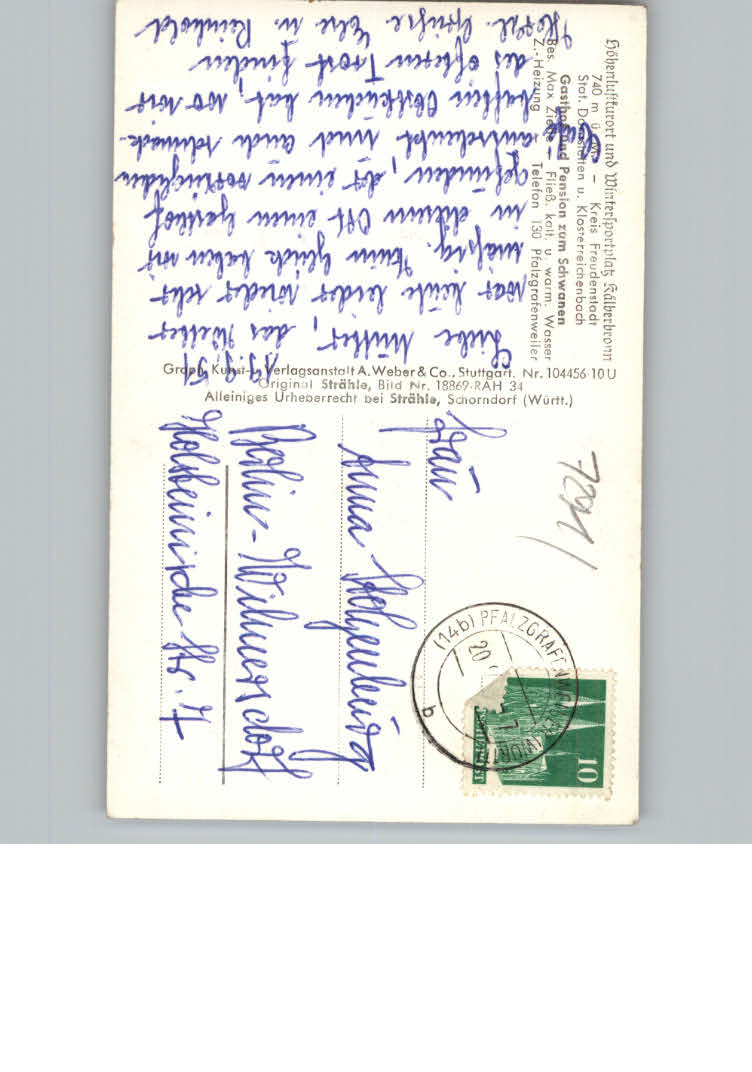 Höhenluftkurort und Wintersportplatz Kälberbronn
740 m ü. M. – Kreis Freudenstadt
Stat. Dornstetten u. Klosterreichenbach
Gasthof und Pension zum Schwanen
Bes. Max Ziefle – Fließ. kalt. u. warm. Wasser
Z.-Heizung – Telefon 130 Pfalzgrafenweiler
19.9.51
Liebe Mutter, das Wetter
war heute leider wieder sehr
mäßig. Zum Glück haben wir
in diesem Ort einen Gasthof
gefunden, der einen vorzüglichen
ausschenkt und auch schmack-
haften Obstkuchen hat, wo wir
des öfteren Trost finden
Herzl. Grüße Eure u. Reinhold
Graph. Kunst- u. Verlagsanstalt A. Weber & Co., Stuttgart. Nr. 104456 10 U
Original Strähle, Bild Nr. 18869-RAH 34
Alleiniges Urheberrecht bei Strähle, Schorndorf (Württ.)
7291/
(14b) PFALZGRAFENWEILER (WÜRTT)
20
b
10
Frau
Anna Hohenleug
Berlin-Wilmersdorf
Holsteinische Str. 7